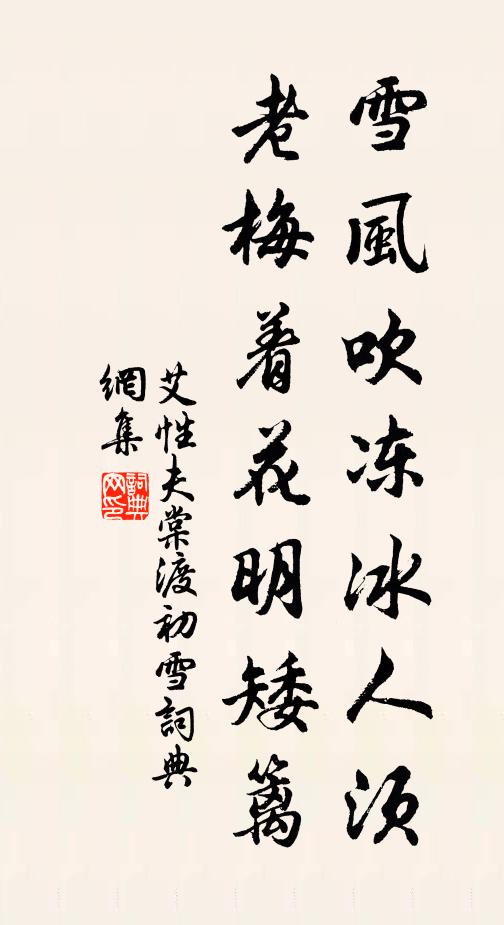 雪風吹冻冰人须
老梅着花明矮篱
艾性夫棠渡初雪詞典
網集
詞典网印